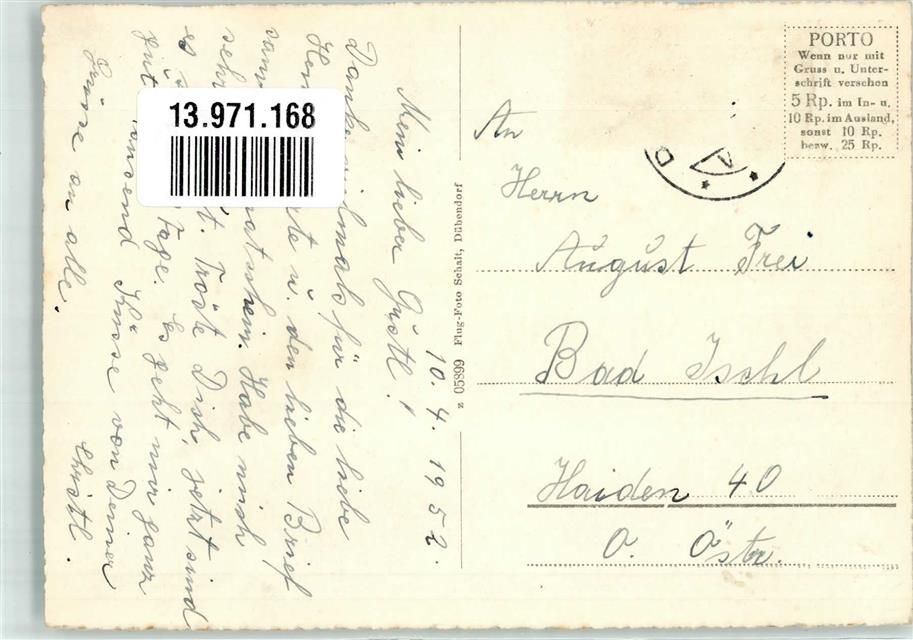 10. 4. 1952.
Mein lieber Gustl!
Danke vielmals für die liebe
Karte u. den lieben Brief
Habe mich
sehr Tröste Dich, jetzt sind
es Tage. Es geht mir ganz
gut Tausend Küsse von Deiner
Christl.
Grüsse an alle.
13.971.168
z 05899 Flug-Foto Schait, Dübendorf
PORTO
Wenn nur mit
Gruss u. Unter-
schrift versehen
5 Rp. im In- u.
10 Rp. im Ausland,
sonst 10 Rp.
bezw. 25 Rp.
An
Herrn
August Frei
Bad Ischl
Haiden 40
O. Östr.